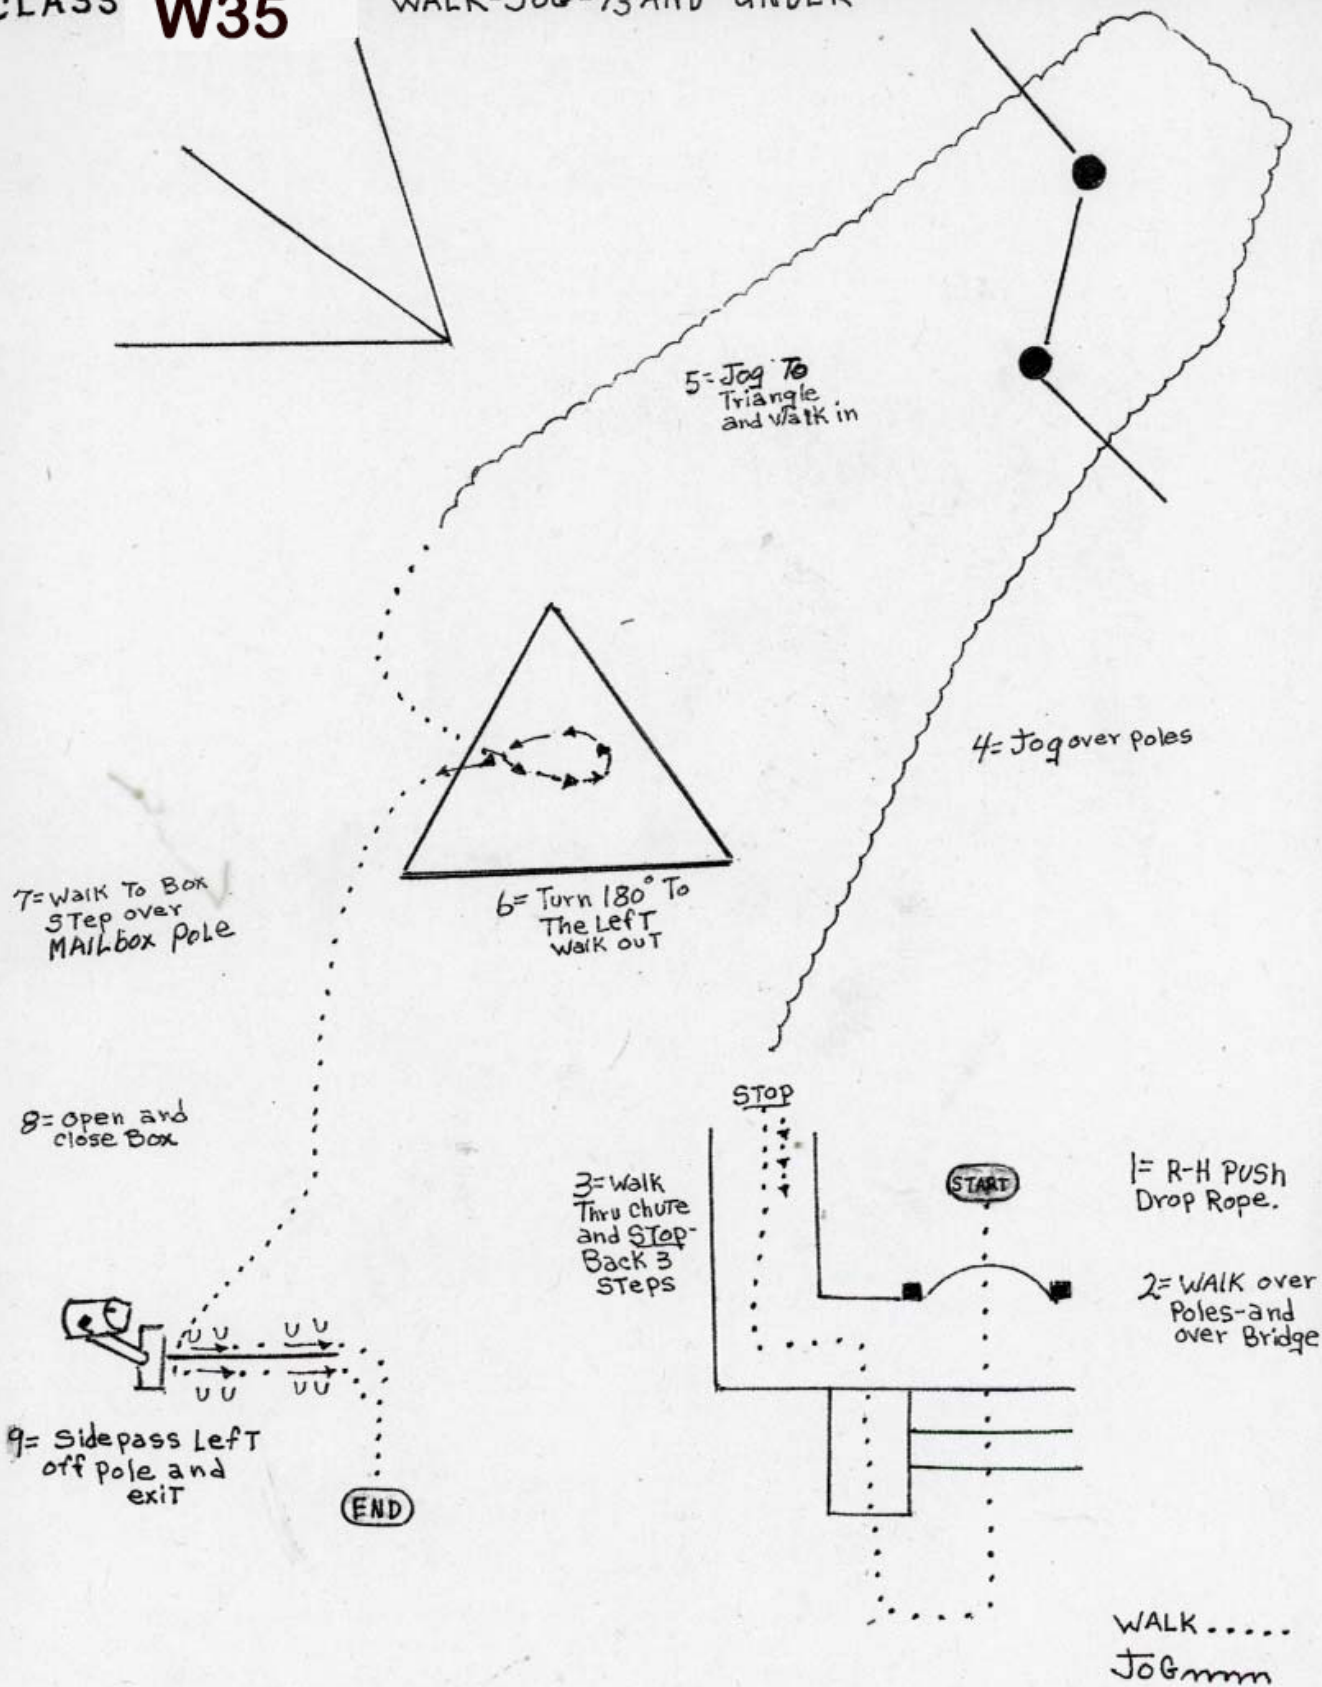 CLASS W35 WALK-JOG-13 AND UNDER
5= Jog To
Triangle
and Walk in
4= Jog over poles
7= Walk To Box
STep over
MAILbox Pole
6= Turn 180° To
The LefT
Walk ouT
8= open and
close Box
STOP
3= Walk
Thru chuTe
and STop-
Back 3
STeps
START
1= R-H PUSH
Drop Rope.
2= WALK over
Poles-and
over Bridge
9= Sidepass LefT
off pole and
exiT
END
WALK.....
JOG